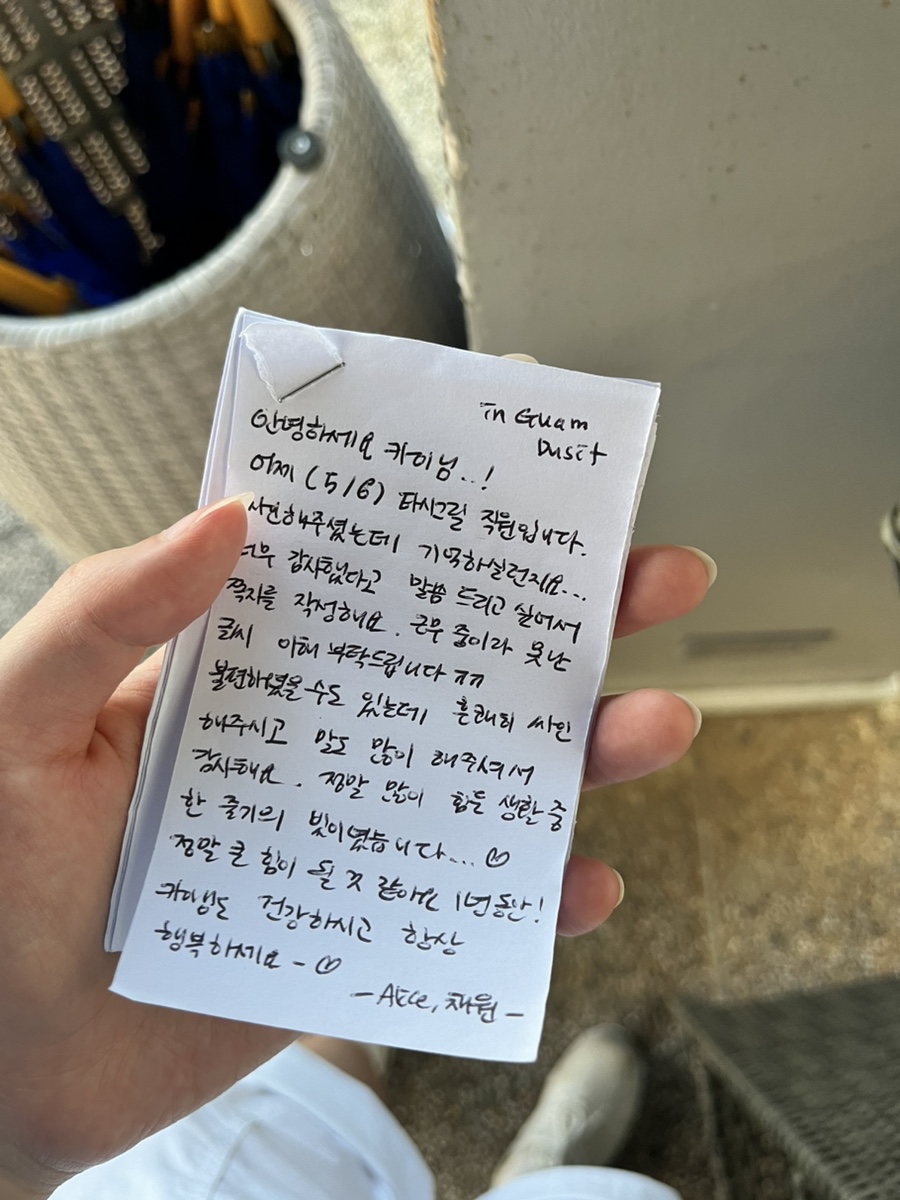 in Guam
Dusit
안녕하세요 카이님..!
어제 (5/6) 타시그릴 직원입니다.
싸인해주셨는데 기억하실런지요...
너무 감사했다고 말씀 드리고 싶어서
쪽지를 작성해요. 근무 중이라 못난
글씨 이해 부탁드립니다 ㅠㅠ
불편하셨을 수도 있는데 흔쾌히 싸인
해주시고 말도 많이 해주셔서
감사해요. 정말 많이 힘든 생활 중
한 줄기의 빛이였습니다... ♡
정말 큰 힘이 될 것 같아요 1년 동안!
카이님도 건강하시고 항상
행복하세요 - ♡
- 채원 -